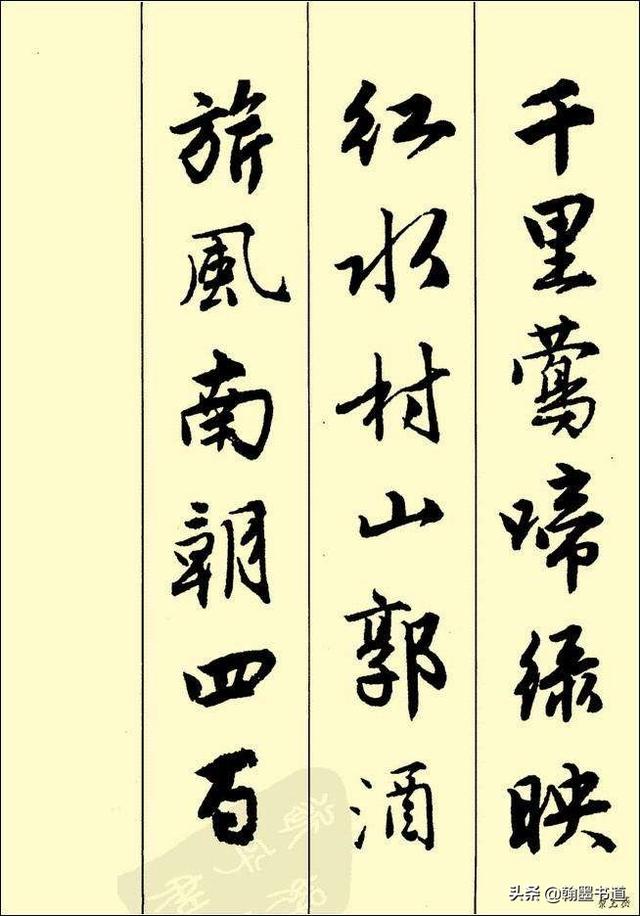 千里莺啼绿映
红水村山郭酒
旂風南朝四百
头条 @翰墨书道